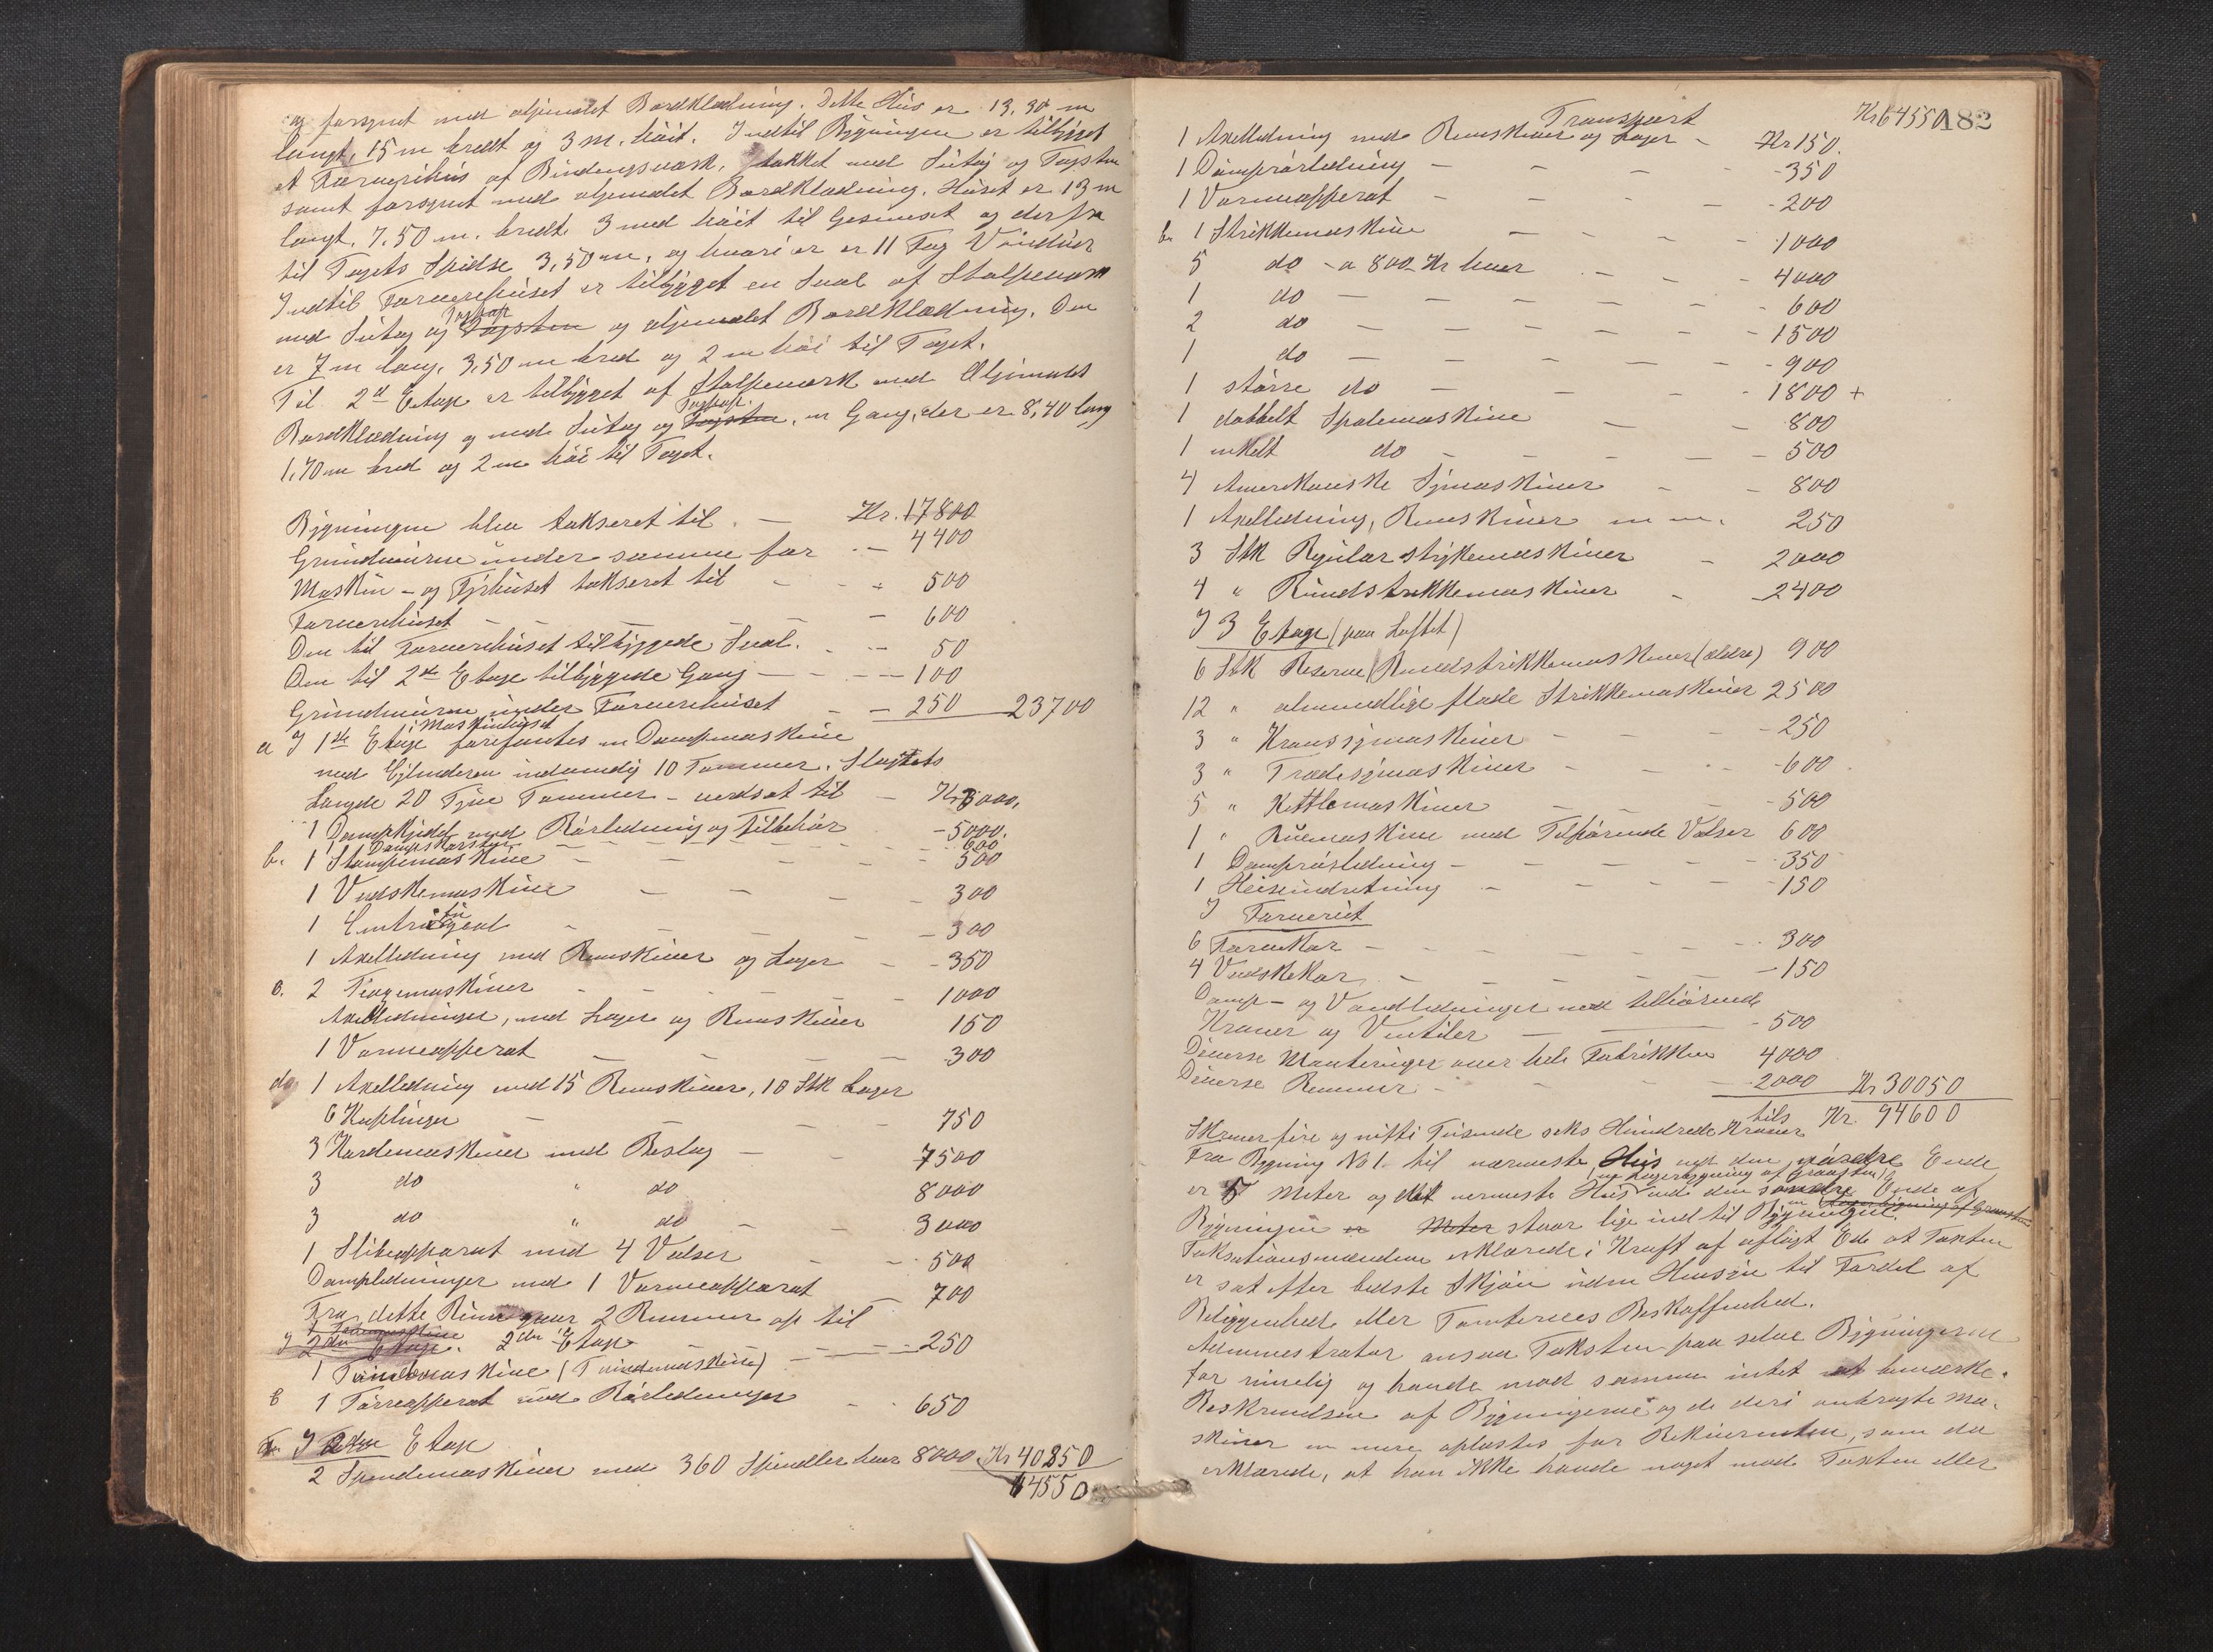 og forsynet med oljemalet Bordklædning. Dette Hus er 13,30 m
langt, 15 m bredt og 3 m. høit. Indtil Bygningen er tilbygget
et Farverihus af Bindingsværk, tækket med Sutag og Tagsten
samt forsynet med oljemalet Bordklædning. Huset er 13 m
langt, 7,50 m. bredt 3 med høit til Gesimset og derfra
til Tagets Spidse 3,50 m, og hvori er er 11 Fag Vinduer
Indtil Farverihuset er tilbygget en Sval af Stolpeværk
med Sutag og Tagpap Tagsten og oljemalet Bordklædning. Den
er 7 m lang, 3,50 m bred og 2 m høi til Taget.
Til 2d Etage er tilbygget af Stolpeværk med Oljemalet
Bordklædning og med Sutag og Tagpap. Tagsten, en Gang, der er 8,40 lang
1,70 m bred og 2 m høi til Taget.
Bygningen blev takseret til . — Kr. 17800
Grundmurene under samme for . — 4400
Maskin- og Fyrhuset takseret til - - - 500
Farverihuset — — — — 600
Den til Farverihuset tilbyggede Sval. - — 50
Den til 2den Etage tilbyggede Gang — - - — 100
Grundmuren under Farverihuset - — 250 23700
a I 1ste Etage i Maskinhuset forefantes en Dampmaskine
med Cylinderen indvendig 10 Tommer, Slagets
Længde 20 Tyve Tommer - verdsat til — Kr 8000.
1 Dampkjedel med Rørledning og Tilbehør - 5000.
1 Dampskorsten - - - - 600
b. 1 Stampemaskine - - - - 500
1 Vadskemaskine — — - - 300
1 Centrifugal - - - — 300
1 Axelledning med Remskiver og Lager - - 350
c. 2 Tragemaskiner - - - - 1000
Axelledninger, med Lager og Remskiver 150
1 Varmeapparat — — — 300
d 1 Axelledning med 15 Remskiver, 10 Stk Lager
6 Koplinger — — - - 750
3 Kardemaskiner med Beslag — - 7500
3 do " do 8000
3 do " do — - 3000
1 Slibeapparat med 4 Valser - - 500
Dampledninger med 1 Varmeapparat — 700
Fra dette Rum gaar 2 Remmer op til
2den Etage — - - - 250
1 Tvindemaskine (Tvindemaskine)
1 Tørreapparat med Rørledninger - - 650
I 2den Etage
2 Spindemaskiner med 360 Spindler hver 8000 Kr 40850
64550
Transport Kr 64550 182
1 Axelledning med Remskiver og Lager - Kr 150.
1 Damprørledning — - — - 350
1 Varmeapparat - - - — - 200
b. 1 Strikkemaskine — - - - 1000
5 do - a 800 Kr hver - — - 4000
1 do — — — — - - 600
2 do — — — - - - 1500
1 do — — — — — 900
1 større do — — - - 1800 +
1 dobbelt Spolemaskine — — 800
1 enkelt do - — - — — 500
4 Amerikanske Symaskiner - — 800
1 Axelledning, Remskiver m m. 250
3 Stk Regular strykemaskiner - 2000
4 " Rundstrikkemaskiner - 2400
I 3 Etage (paa Loftet)
6 Stk Reserve Rundstrikkemaskiner (ældre) 900
12 " almindlige flade Strikkemaskiner 2500
3 " Kranssymaskiner - - - 250
3 " Trædesymaskiner - - - 600
5 " Kettlemaskiner — — - 500
1 " Ruemaskine med Tilhørende Valser 600
1 Damprørledning — — — — - 350
1 Heiseindretning - - - — - 150
I Farveriet
6 Farvekar — - - - - 300
4 Vadskekar - - - — — 150
Damp- og Vandledninger med tilhørende
Kraner og Ventiler — — - 500
Diverse Monteringer over hele Fabrikken 4000
Diverse Remmer - - - — 2000 Kr 30050
tils Kr. 94600
Skriver fire og nitti Tusinde seks Hundrede Kroner
Fra Bygning No 1. til nærmeste Hus ved den nordre Ende
er 5 Meter og det nærmeste Hus (en Lagerbygning af Graasten) ved den søndre Ende af
Bygningen er Meter staar lige ind til Bygningen.
Taksationsmændene erklærede i Kraft af aflagt Ed at Taxten
er sat efter bedste Skjøn uden Hensyn til Fordel af
Beliggenhed eller Tomternes Beskaffenhed.
Administrator ansaa Taksten paa selve Bygningerne
for rimelig og havde mod samme intet at bemærke.
Beskrivelsen af Bygningerne og de deri anbragte Ma-
skiner m mere oplæstes for Rekvirenten, som da
erklærede, at han ikke havde noget mod Taxten eller